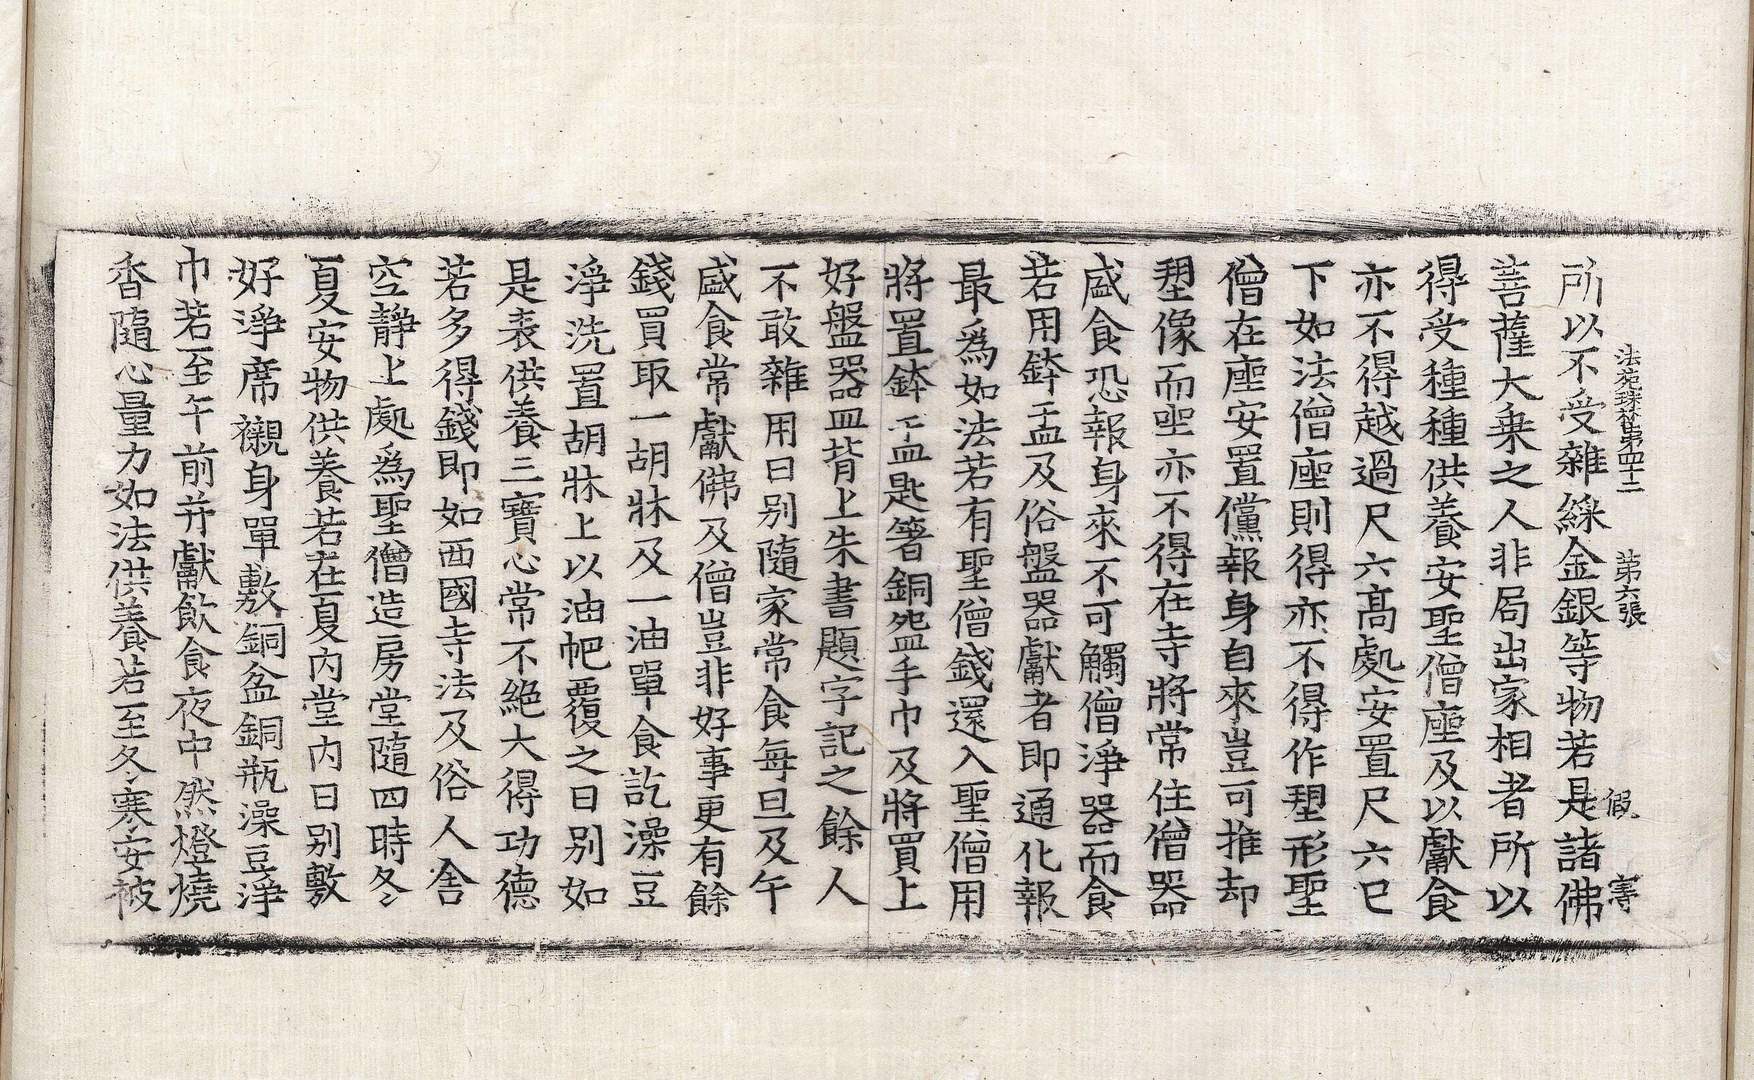 法苑珠林第四十二 第六張 假 寒
所以不受雜綵金銀等物若是諸佛
菩薩大乘之人非局出家相者所以
得受種種供養安聖僧座及以獻食
亦不得越過尺六高處安置尺六已
下如法僧座則得亦不得作塑形聖
僧在座安置儻報身自來豈可推却
塑像而聖亦不得在寺將常住僧器
盛食恐報身來不可觸僧淨器而食
若用鉢盂及俗盤器獻者即通化報
最爲如法若有聖僧錢還入聖僧用
將置鉢盂匙箸銅盌手巾及將買上
好盤器皿背上朱書題字記之餘人
不敢雜用日别隨家常食每旦及午
盛食常獻佛及僧豈非好事更有餘
錢買取一胡牀及一油單食訖澡豆
淨洗置胡牀上以油帊覆之日别如
是表供養三寶心常不絕大得功德
若多得錢即如西國寺法及俗人舍
空靜上處爲聖僧造房堂隨四時冬
夏安物供養若在夏內堂內日别敷
好淨席襯身單敷銅盆銅瓶澡豆淨
巾若至午前并獻飲食夜中然燈燒
香隨心量力如法供養若至冬寒安被